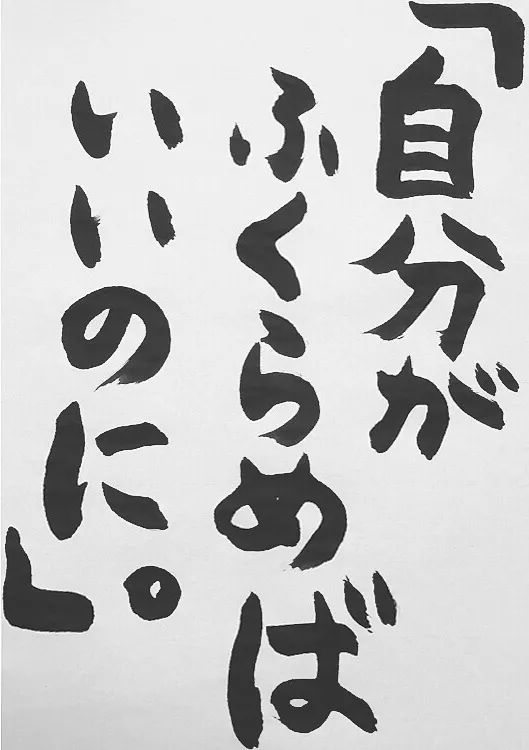 「自分が
ふくらめば
いいのに。」